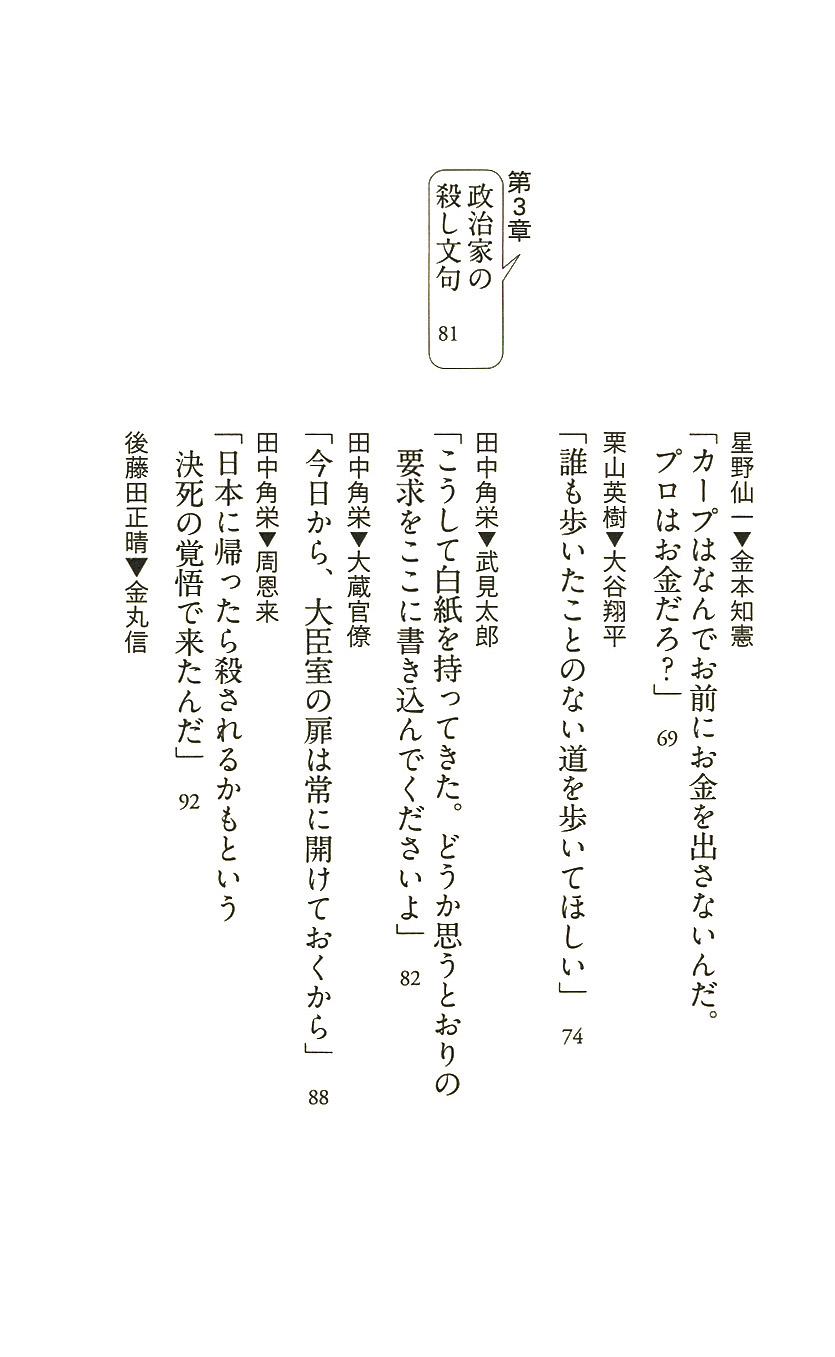 星野仙一▼金本知憲
「カープはなんでお前にお金を出さないんだ。
プロはお金だろ？」 69
栗山英樹▼大谷翔平
「誰も歩いたことのない道を歩いてほしい」 74
第3章
政治家の
殺し文句 81
田中角栄▼武見太郎
「こうして白紙を持ってきた。どうか思うとおりの
要求をここに書き込んでくださいよ」 82
田中角栄▼大蔵官僚
「今日から、大臣室の扉は常に開けておくから」 88
田中角栄▼周恩来
「日本に帰ったら殺されるかもという
決死の覚悟で来たんだ」 92
後藤田正晴▼金丸信